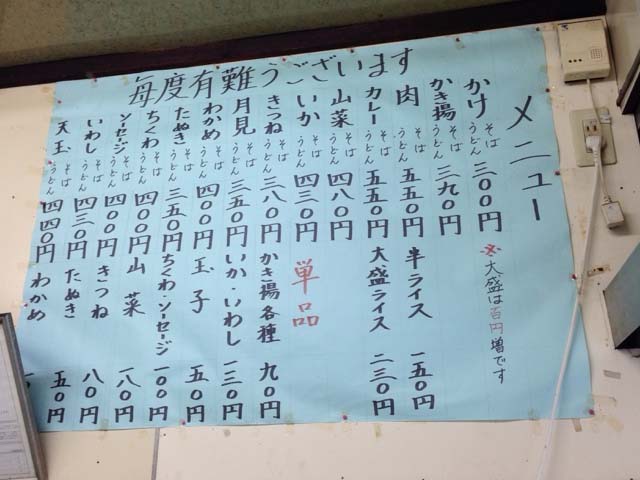 毎度有難うございます
メニュー
かけ そば うどん 三〇〇円
かき揚 そば うどん 三九〇円
肉 うどん 五五〇円
カレー うどん 五五〇円
山菜 そば うどん 四八〇円
いか そば うどん 四三〇円
きつね そば うどん 三八〇円
月見 そば うどん 三五〇円
わかめ そば うどん 四〇〇円
たぬき そば うどん 三五〇円
ちくわ そば うどん 四〇〇円
ソーセージ そば うどん 四〇〇円
いわし そば うどん 四三〇円
天玉 そば うどん 四四〇円
※大盛は百円増です
半ライス 一五〇円
大盛ライス 二三〇円
単品
かき揚各種 九〇円
いか・いわし 一三〇円
玉子 五〇円
ちくわ・ソーセージ 一〇〇円
山菜 一八〇円
きつね 八〇円
たぬき 五〇円
わかめ